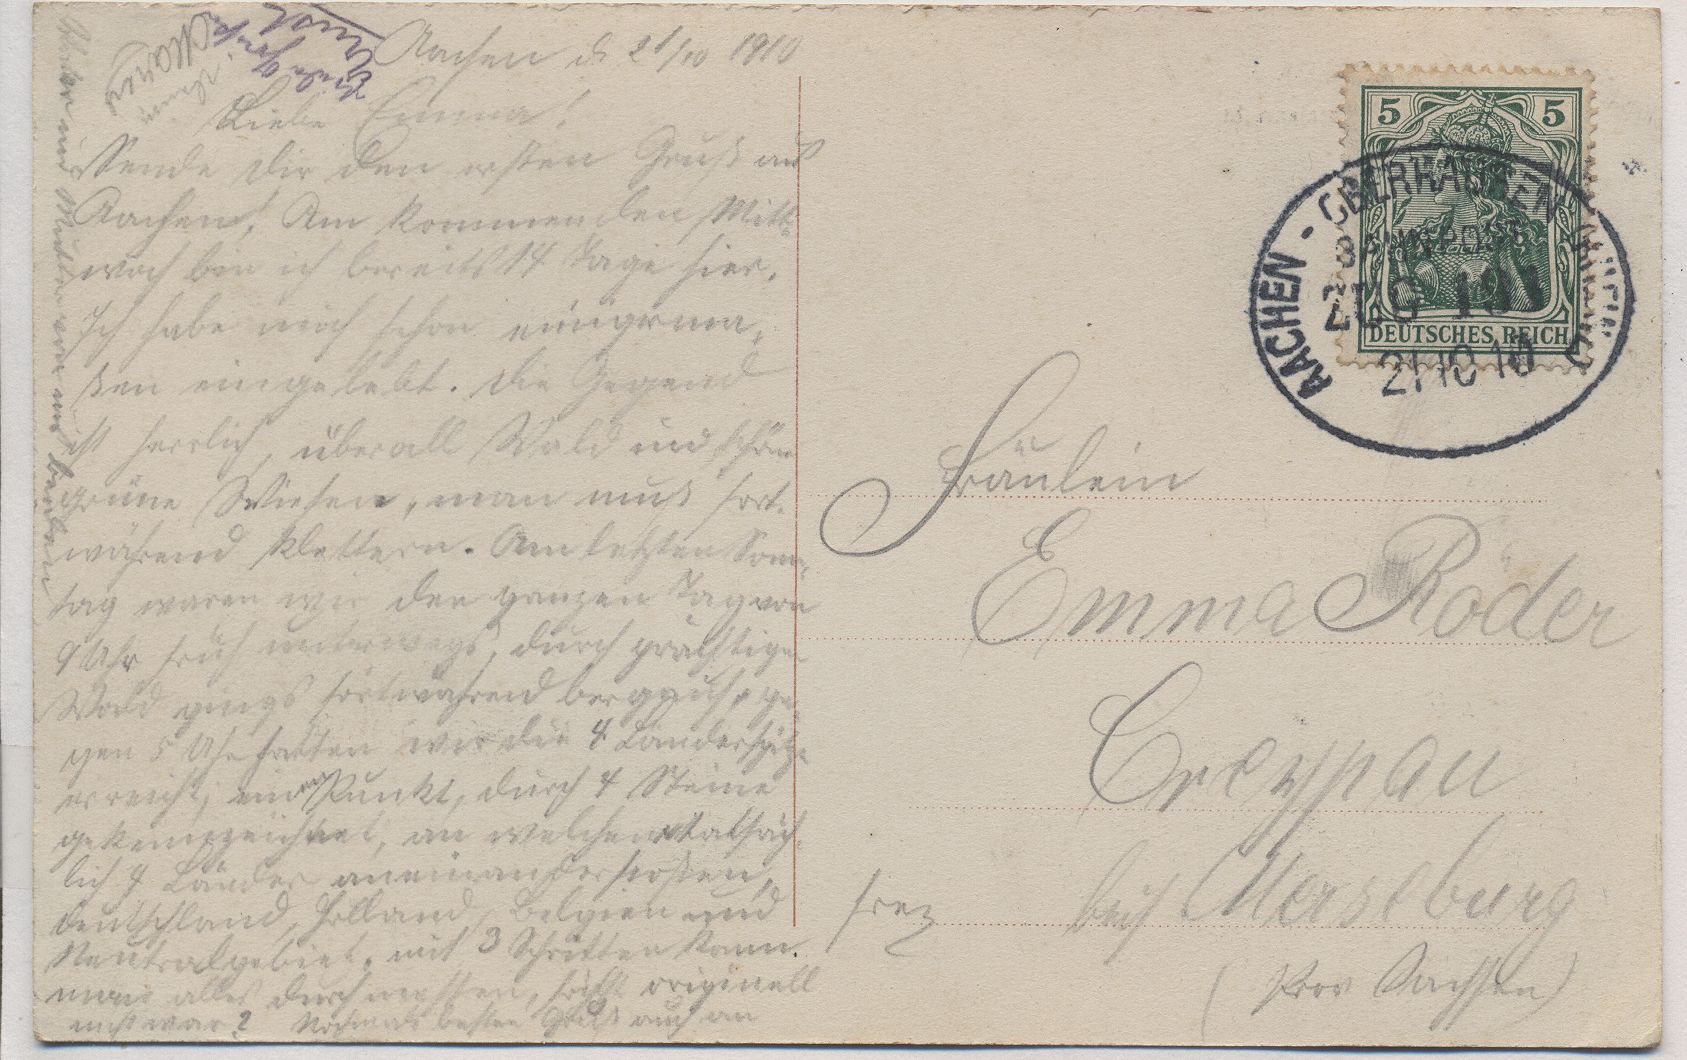 Aachen d 21/10 1910
Liebe Emma!
Sende dir den ersten Gruß aus
Aachen! Am kommenden Mitt-
woch bin ich bereits 14 Tage hier.
Ich habe mich schon einigerma-
ßen eingelebt. Die Gegend
ist herrlich, überall Wald und schöne
grüne Wiesen, man muß fort-
während klettern. Am letzten Sonn-
tag waren wir den ganzen Tag von
9 Uhr früh unterwegs, durch prächtigen
Wald gings fortwährend bergauf, ge-
gen 5 Uhr hatten wir die 4 Länderspitze
erreicht, ein Punkt, durch 4 Steine
gekennzeichnet, an welchem tatsäch-
lich 4 Länder aneinanderstoßen,
Deutschland, Holland, Belgien und
Neutralgebiet, mit 3 Schritten kann
man alles durchmessen, höchst originell
nicht war? Nochmals besten Gruß auch an
Vater und Mutter von
Viele Grüße
5 5
DEUTSCHES REICH
AACHEN - OBERHAUSEN
BAHNPOST
ZUG
21 10 10
Fräulein
Emma Röder
Creypau
frez
bei Merseburg
(Prov Sachsen)